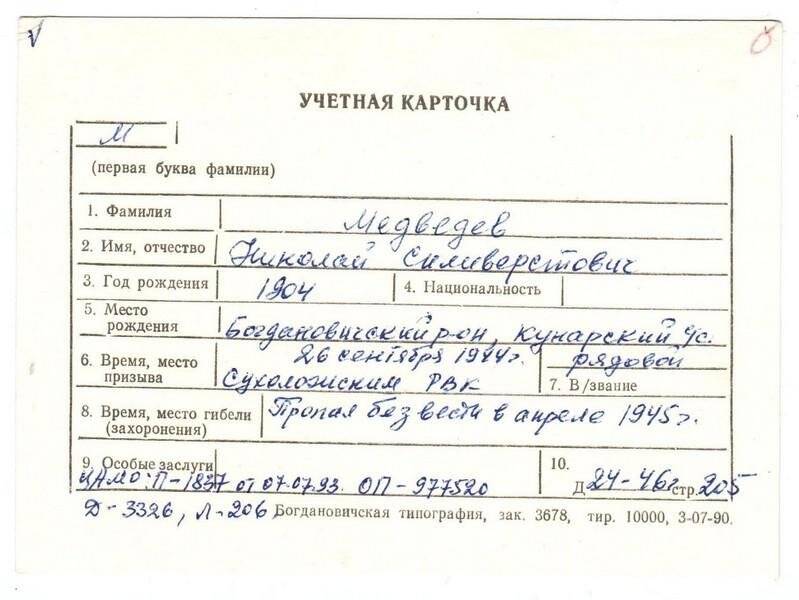 УЧЕТНАЯ КАРТОЧКА
М
(первая буква фамилии)
1. Фамилия Медведев
2. Имя, отчество Николай Силиверстович
3. Год рождения 1904 4. Национальность
5. Место рождения Богдановичский р-он, Кунарский с/с.
6. Время, место призыва 26 сентября 1944г. Сухоложским РВК
рядовой
7. В/звание
8. Время, место гибели (захоронения) Пропал без вести в апреле 1945г.
9. Особые заслуги
ЦАМО: П-1837 от 07.07.93. ОП-977520
10.
Д 24-46г стр. 205
Д-3326, Л-206 Богдановичская типография, зак. 3678, тир. 10000, 3-07-90.